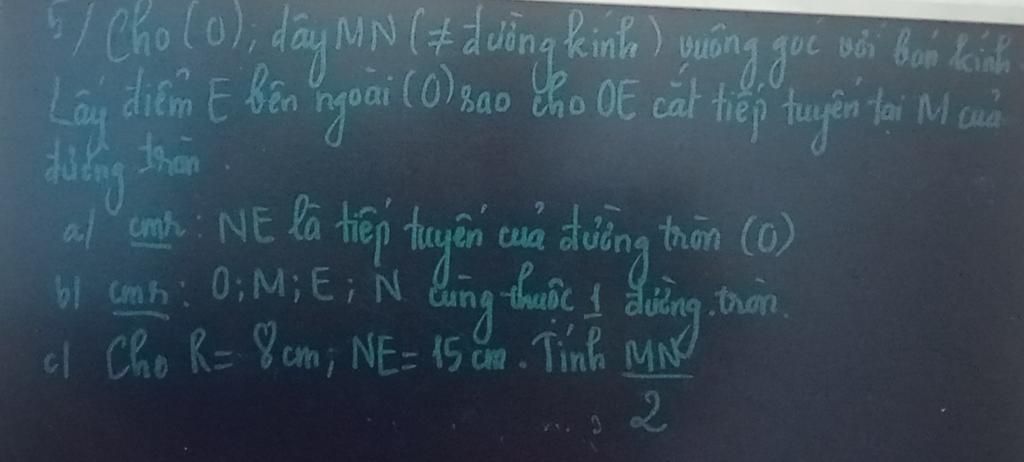 5/ Cho (O); dây MN (≠ đường kính) vuông góc với bán kính
Lấy điểm E bên ngoài (O) sao cho OE cắt tiếp tuyến tại M của
đường tròn.
a) cmr: NE là tiếp tuyến của đường tròn (O)
b) cmr: O; M; E; N cùng thuộc 1 đường tròn.
c) Cho R = 8 cm; NE = 15 cm. Tính MN
2